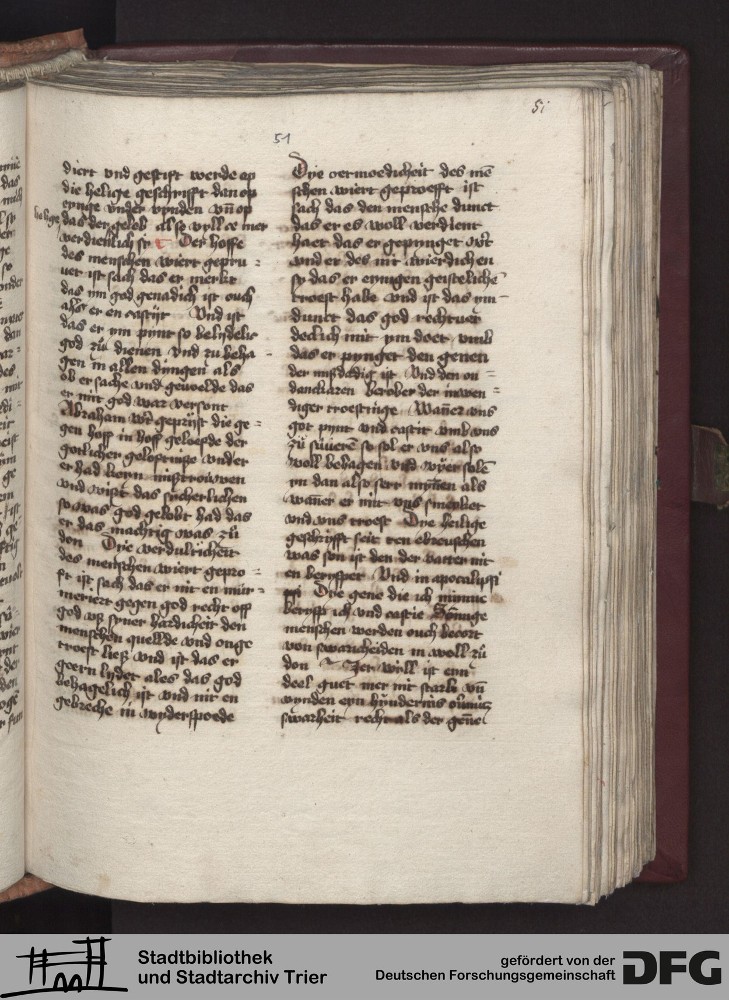 51
51
diert vnd gestift werde op
die helige geschrifft dan op
eynge vnder vynden vn̄ op
helige das der gelob also vyll ee mer
verdienlich sy Der hoffe
des menschen wiert gepru-
uet ist sach das er merkt
das ym god genadich ist ouch
als er en castijt Vnd ist
das er ym pynt so belydelic
god zů dienen vnd zu beha-
gen in allen dyngen als
ob er sache vnd gevoelde das
er mit god war versont
Abraham wart geprijst die ge-
gen hoff in hoff geloefde der
gotlicher geloftnisse vnder
er had keyn misstrouwen
vnd wist das sucherlichen
so was god gelobt had das
er das machtig was zů
don Die verdulticheit
des menschen wiert gepro-
ft ist sach das er nit en mur-
meriert gegen god recht off
god vss syner hardicheit den
menschen quellde vnd onge
troest liess vnd ist das er
geern lydet ales das god
behagelich ist vnd nit en
gebreche in wyderspoede
Dye oetmoedicheit des me
schen wiert geproefft ist
sach das den mensche dunct
das er es woll verdient
haet das er gepynget wirt
vnd er des nit wierdich en
sy das er eynigen geisteliche
troest habe vnd ist das ym
dunct das god rechtuer
declich mit ym doet vmb
das er pynget den genen
der missdadig ist Vnd den on-
danckbaren berober der inwen-
diger troestinge Wan̄er vns
got pynt vnd castit vmb vns
zů súueren so sol er vns also
woll behagen vnd wyer solē
yn dan also serr mynen als
wan̄er er mit vns smeicket
vnd vns troest Dye heilige
geschryfft seit zen ebreuschen
was son ist den der vatter nit
en beryspet Vnd in apocalipsi
Dye gene die ich mynne
beryspt ich vnd castie Sonnige
menschen werden ouch becort
von swaricheiden in woll zů
don Jer will ist eyn
deel guet mer nit starck vn̄
vynden eyn hyndernis
swarheit recht als der gene
Stadtbibliothek
und Stadtarchiv Trier
gefördert von der
Deutschen Forschungsgemeinschaft
DFG